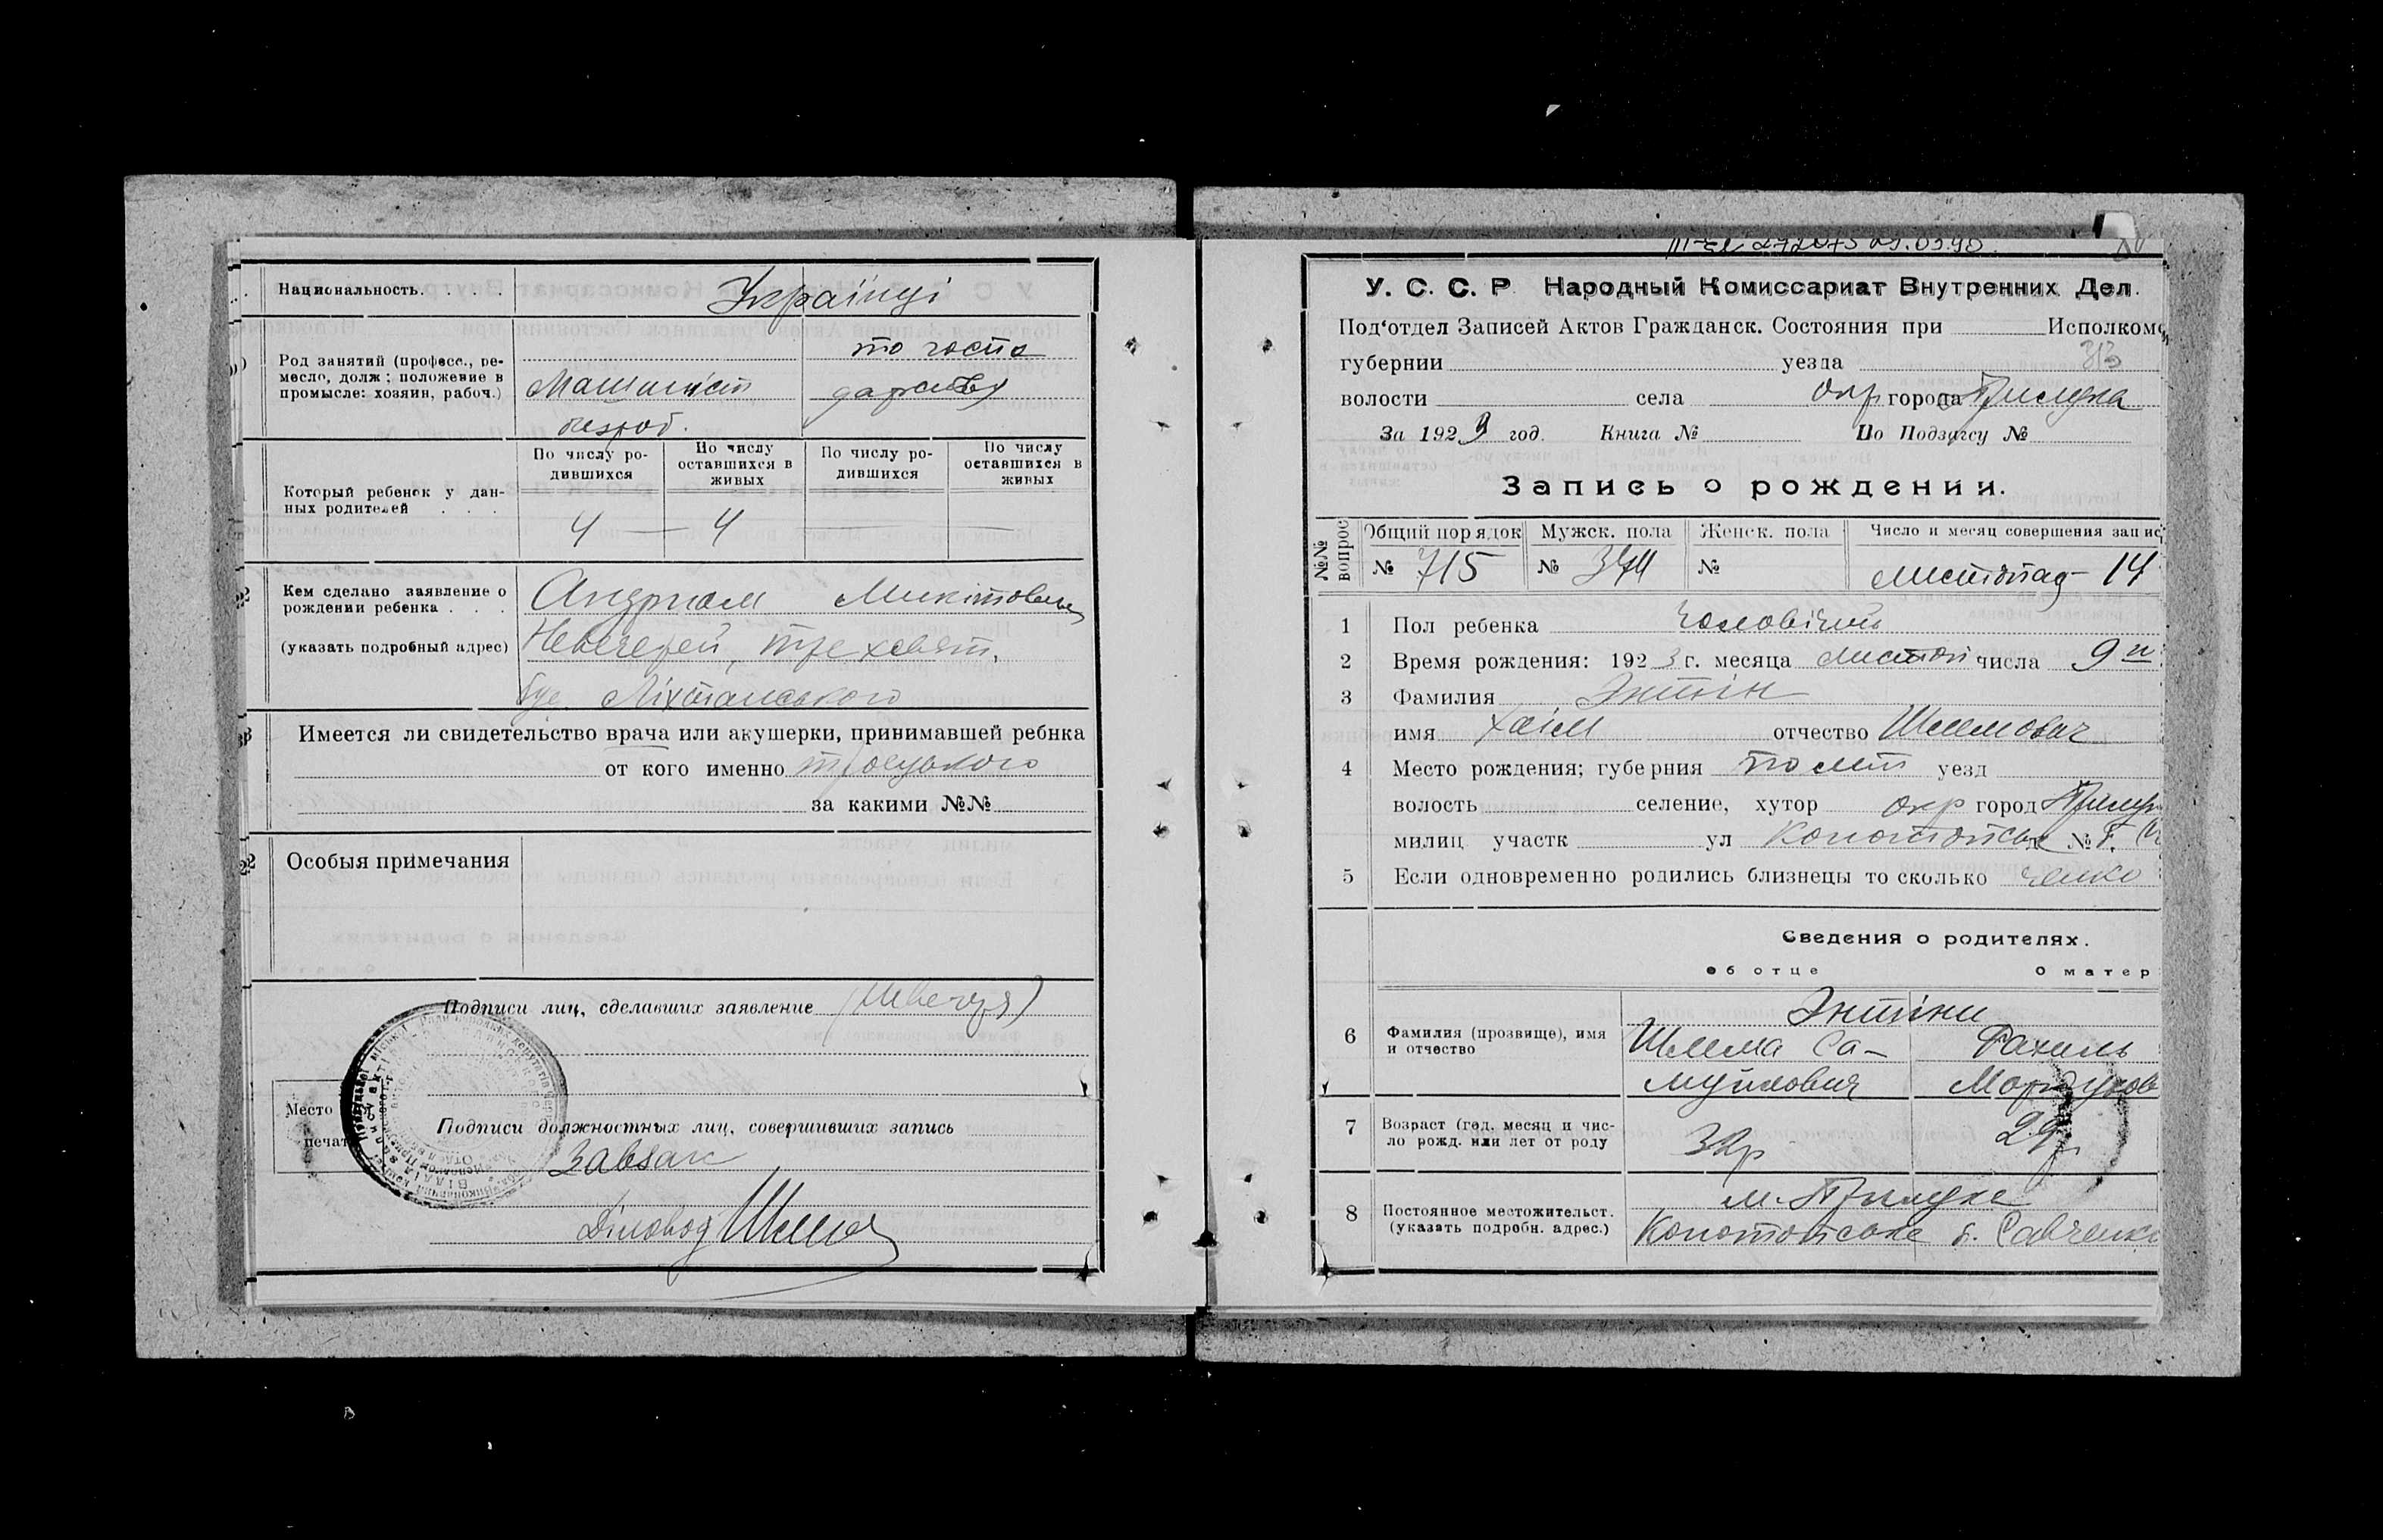 Национальность. . . .
Українці
Род занятий (професс., ре-
месло, долж; положение в
промысле: хозяин, рабоч.)
Машиніст
безроб.
по госпо
дарству
Который ребенок у дан-
ных родителей . . .
По числу ро-
дившихся
По числу
оставшихся в
живых
По числу ро-
дившихся
По числу
оставшихся в
живых
4 — 4
Кем сделано заявление о
рождении ребенка . . .
(указать подробный адрес)
Андрієм Микітовичем
Невечерей,
буд.
Имеется ли свидетельство врача или акушерки, принимавшей ребнка
от кого именно
за какими №№
Особыя примечания
Подписи лиц, сделавших заявление
Место
печат
Подписи должностных лиц, совершивших запись
Завзаг
Діловод
У. С. С. Р Народный Комиссариат Внутренних Дел.
Под‘отдел Записей Актов Гражданск. Состояния при Исполкомо
губернии уезда
313
волости села окр города Прилука
За 1923 год. Книга № По Подзагсу №
Запись о рождении.
№№ вопрос
Общий порядок Мужск. пола Женск. пола Число и месяц совершения запис
№ 715 № 374 № листопад — 14
1 Пол ребенка чоловічий
2 Время рождения: 1923 г. месяца листоп числа 9
3 Фамилия Энтін
имя Хаім отчество Шлемович
4 Место рождения; губерния Полт уезд
волость селение, хутор окр город Прилук
милиц участк ул Конотопськ №
5 Если одновременно родились близнецы то сколько
ченко
Сведения о родителях.
об отце О матер
6 Фамилия (прозвище), имя
и отчество
Энтіни
Шлема Са-
муилович
Рахиль
Мордухов
7 Возраст (год, месяц и чис-
ло рожд. или лет от роду
32р
29р
8 Постоянное местожительст.
(указать подробн. адрес.)
м. Прилуке
Конотопське б. Савченко